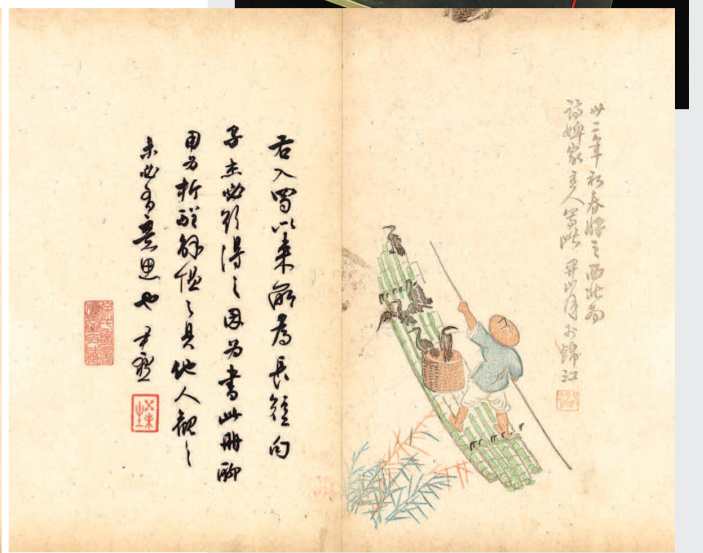 卅二年初春將之西北為
詩婢家主人寫此 關山月於錦江
右入蜀以來所為長短句
子杰必欲得之因為書此冊聊
用為析酲解慍之具他人觀之
未必有意思也 尹默